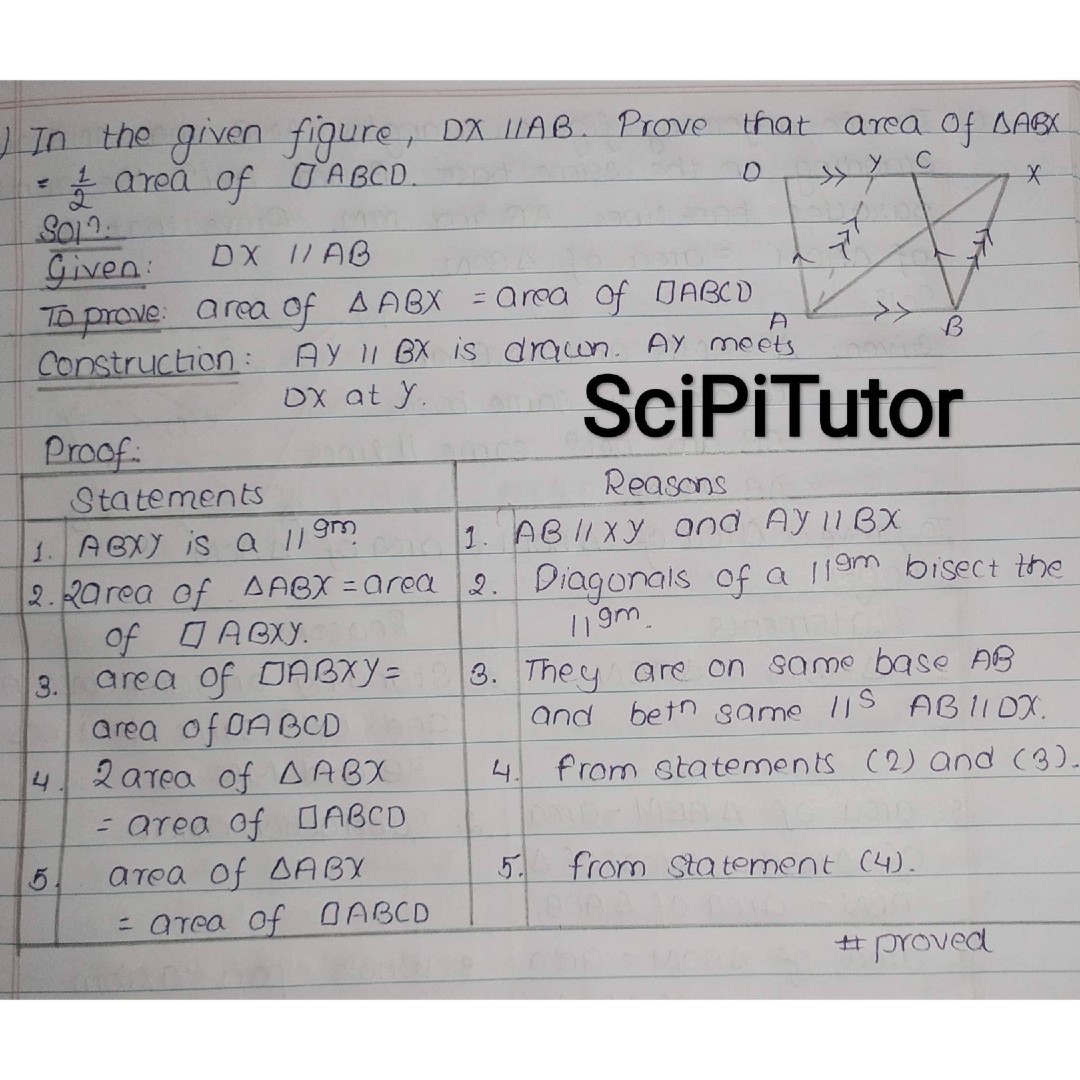 ) In the given figure, DX //AB. Prove that area of ΔABX
= 1/2 area of ▱ABCD.
D >> Y C X
Solⁿ:
Given: DX // AB
To prove: area of ΔABX = area of ▱ABCD
A >> B
Construction: AY // BX is drawn. AY meets
DX at y.
SciPiTutor
Proof:
Statements Reasons
1. ABXY is a //gm. 1. AB // XY and AY // BX
2. 2area of ΔABX = area 2. Diagonals of a //gm bisect the
of ▱ ABXY. //gm.
3. area of ▱ABXY = 3. They are on same base AB
area of ▱ABCD and betn same //s AB // DX.
4. 2 area of ΔABX 4. from statements (2) and (3).
= area of ▱ABCD
5. area of ΔABX 5. from statement (4).
= area of ▱ABCD
# proved